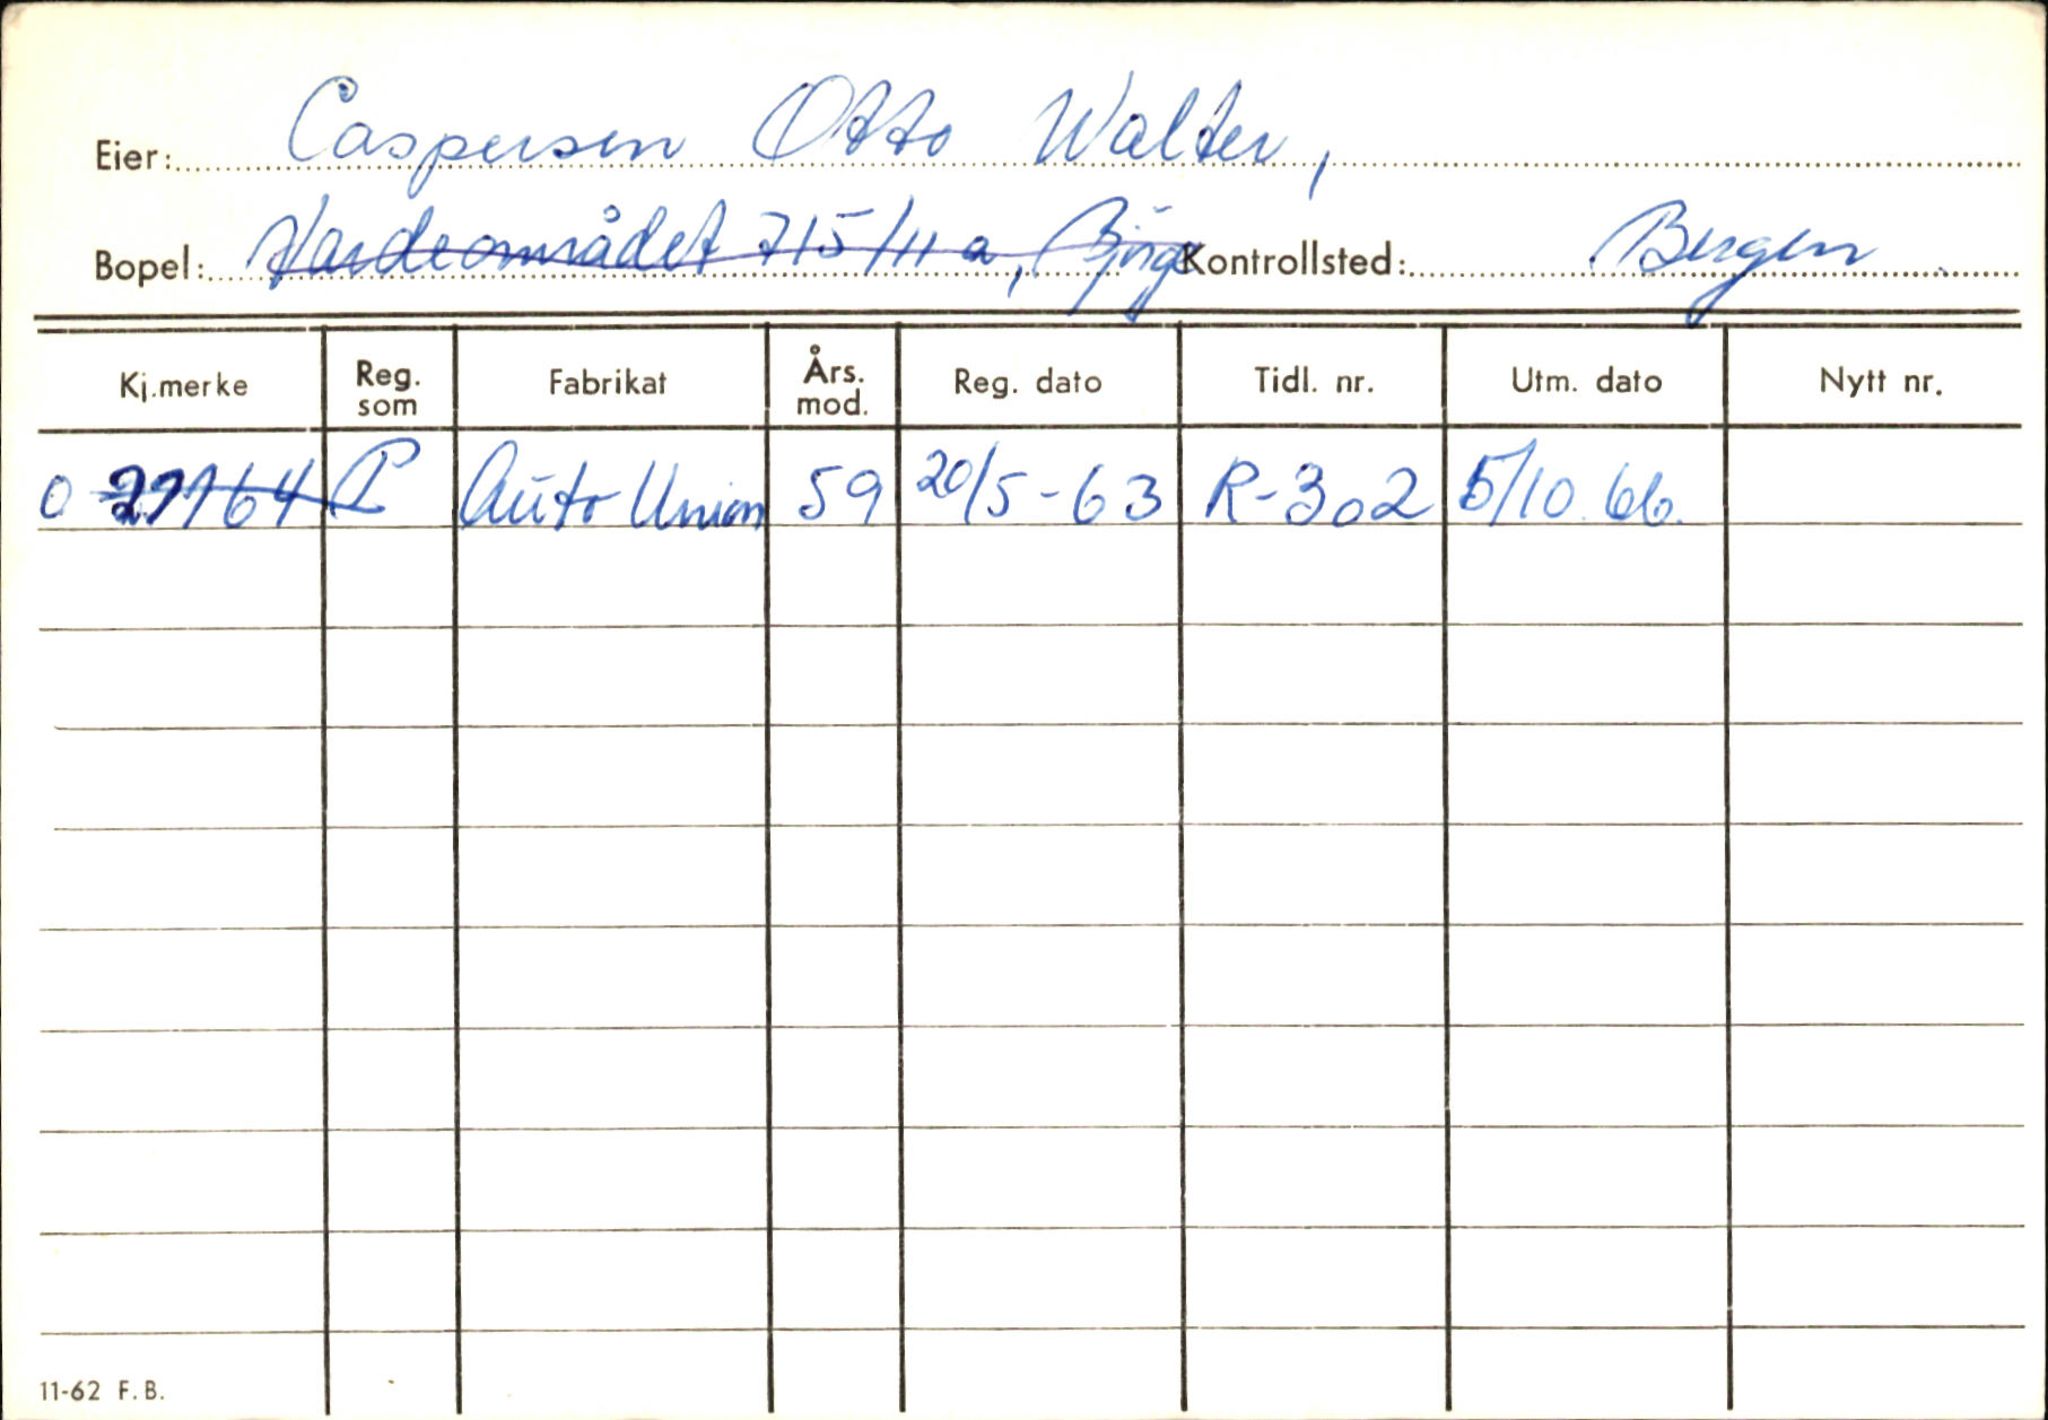 Eier: Caspersen Otto Walter,
Bopel: Vardeområdet 715/11 a, Bjørge Kontrollsted: Bergen
Kj.merke Reg. som Fabrikat Års. mod. Reg. dato Tidl. nr. Utm. dato Nytt nr.
O 29164 P Auto Union 59 20/5-63 R-302 5/10.66.
11-62 F.B.